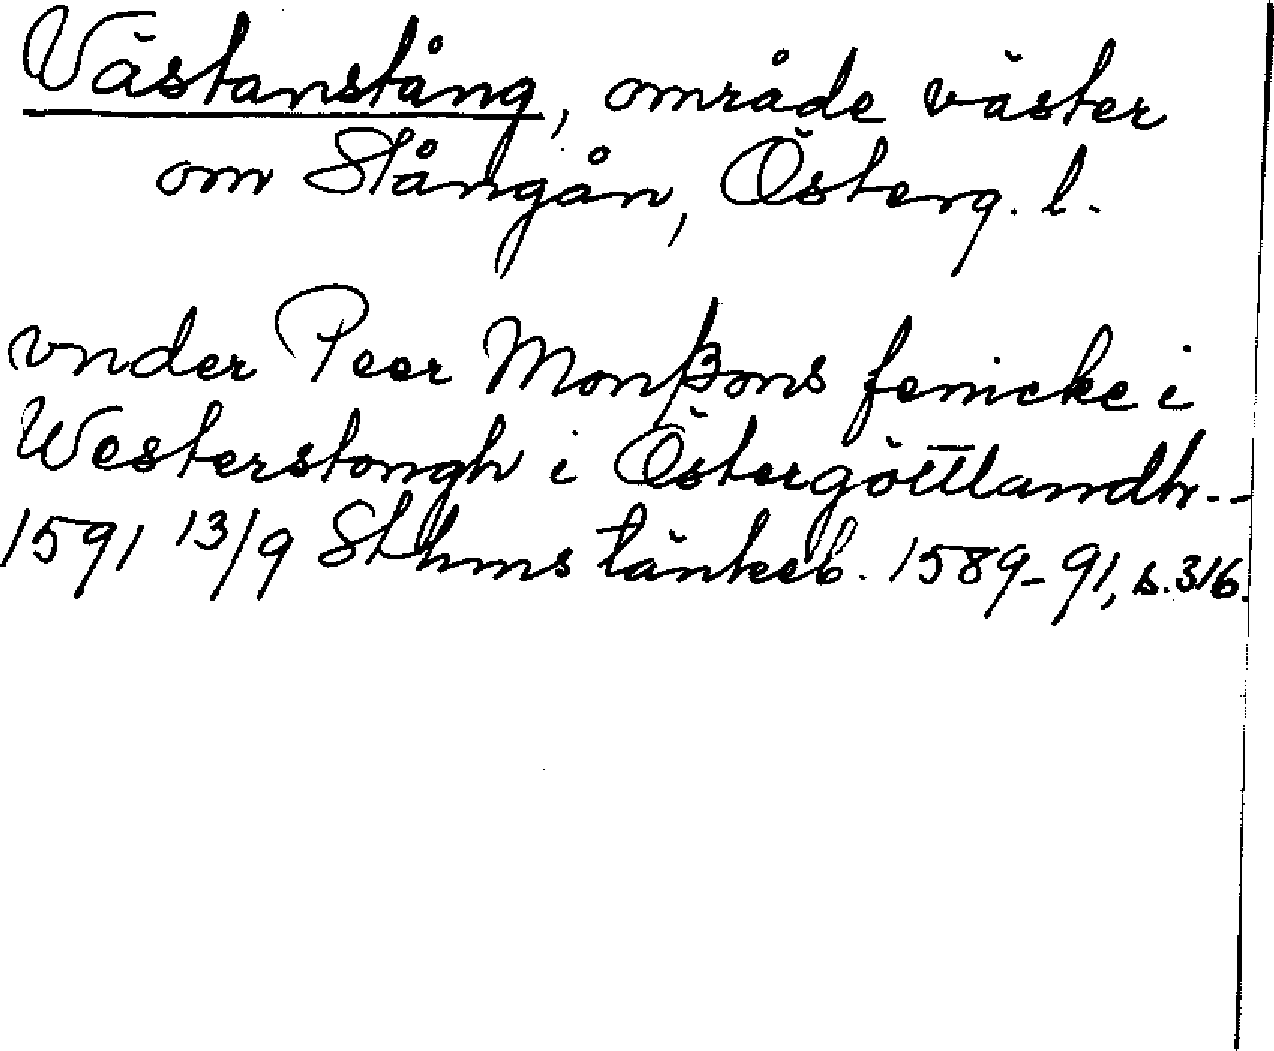 Västanstång, område väster
om Stångån, Österg. l.
vnder Peer Monßons fenicke i
Westerstongh i Östergöttlandh. -
1591 13/9 Sthms tänkeb. 1589-91, s. 316.